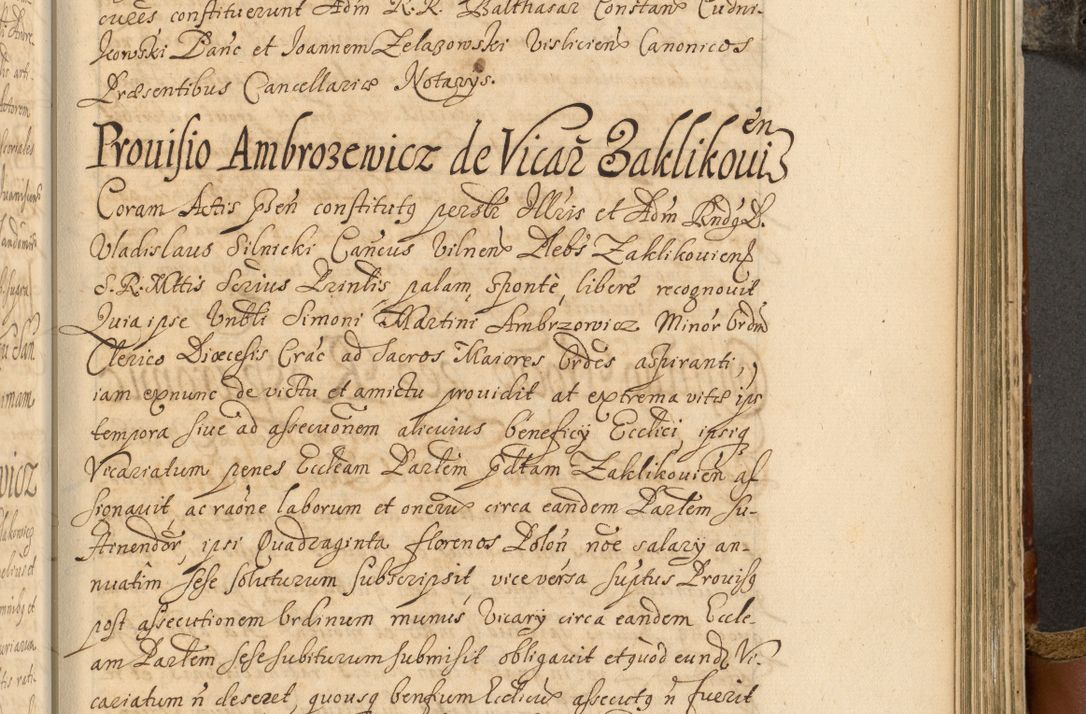 cures constituerunt Adm R. R. Balthasar Constan Cudni-
kowski Banc et Joannem Zelazowski Visliciens Canonicos
Præsentibus Cancellariæ Notarys.
Prouisio Ambrozewicz de Vicar Zaklikouien
Coram Actis Pen constitutq persltr Illris et Adm Rndq D.
Vladislaus Silnicki Cancus Vilnens Plebs Zaklikouiens
S. R. Mttis Scrius Printis palam, sponte, libere recognouit
Quia ipse Vnbli Simoni Martini Ambrzowicz Minor Ordm
Clerico Diœcesis Crac ad Sacros Maiores Ordes aspiranti,
iam exnunc de victu et amictu prouidit at extrema vitæ ips
tempora siue ad assecuõnem alicuius beneficy Ecclici ipsiq
Vicariatum penes Eccleam Parlem pdtam Zaklikouien as
signauit ac raõne laborum et onerũ circa eandem Parlem su-
stinendor, ipsi Quadraginta florenos Polon nõe salary an-
nuatim sese soluturum subscripsit vice versa suptus Prouisq
post assecutionem Ordinum munus Vicary circa eandem Eccle-
am Parlem sese subiturum submisit obligauit et quod eund Vi-
cariatum ñ deseret, quousq benefium Ecclicũ assecutq ñ fuerit